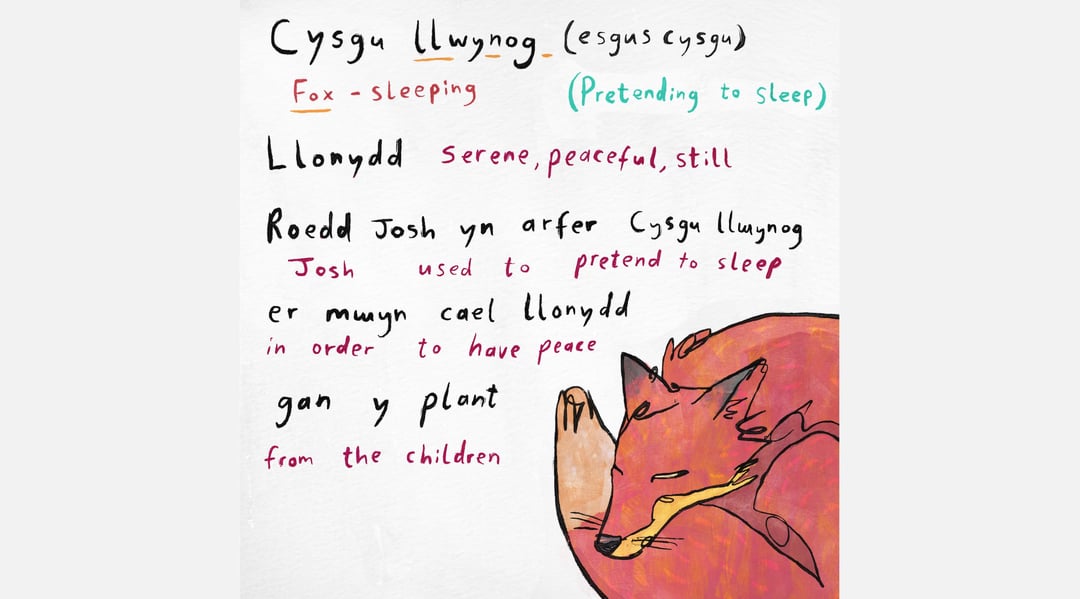 Cysgu llwynog (esgus cysgu)
Fox - sleeping (Pretending to sleep)
Llonydd serene, peaceful, still
Roedd Josh yn arfer Cysgu llwynog
Josh used to pretend to sleep
er mwyn cael llonydd
in order to have peace
gan y plant
from the children